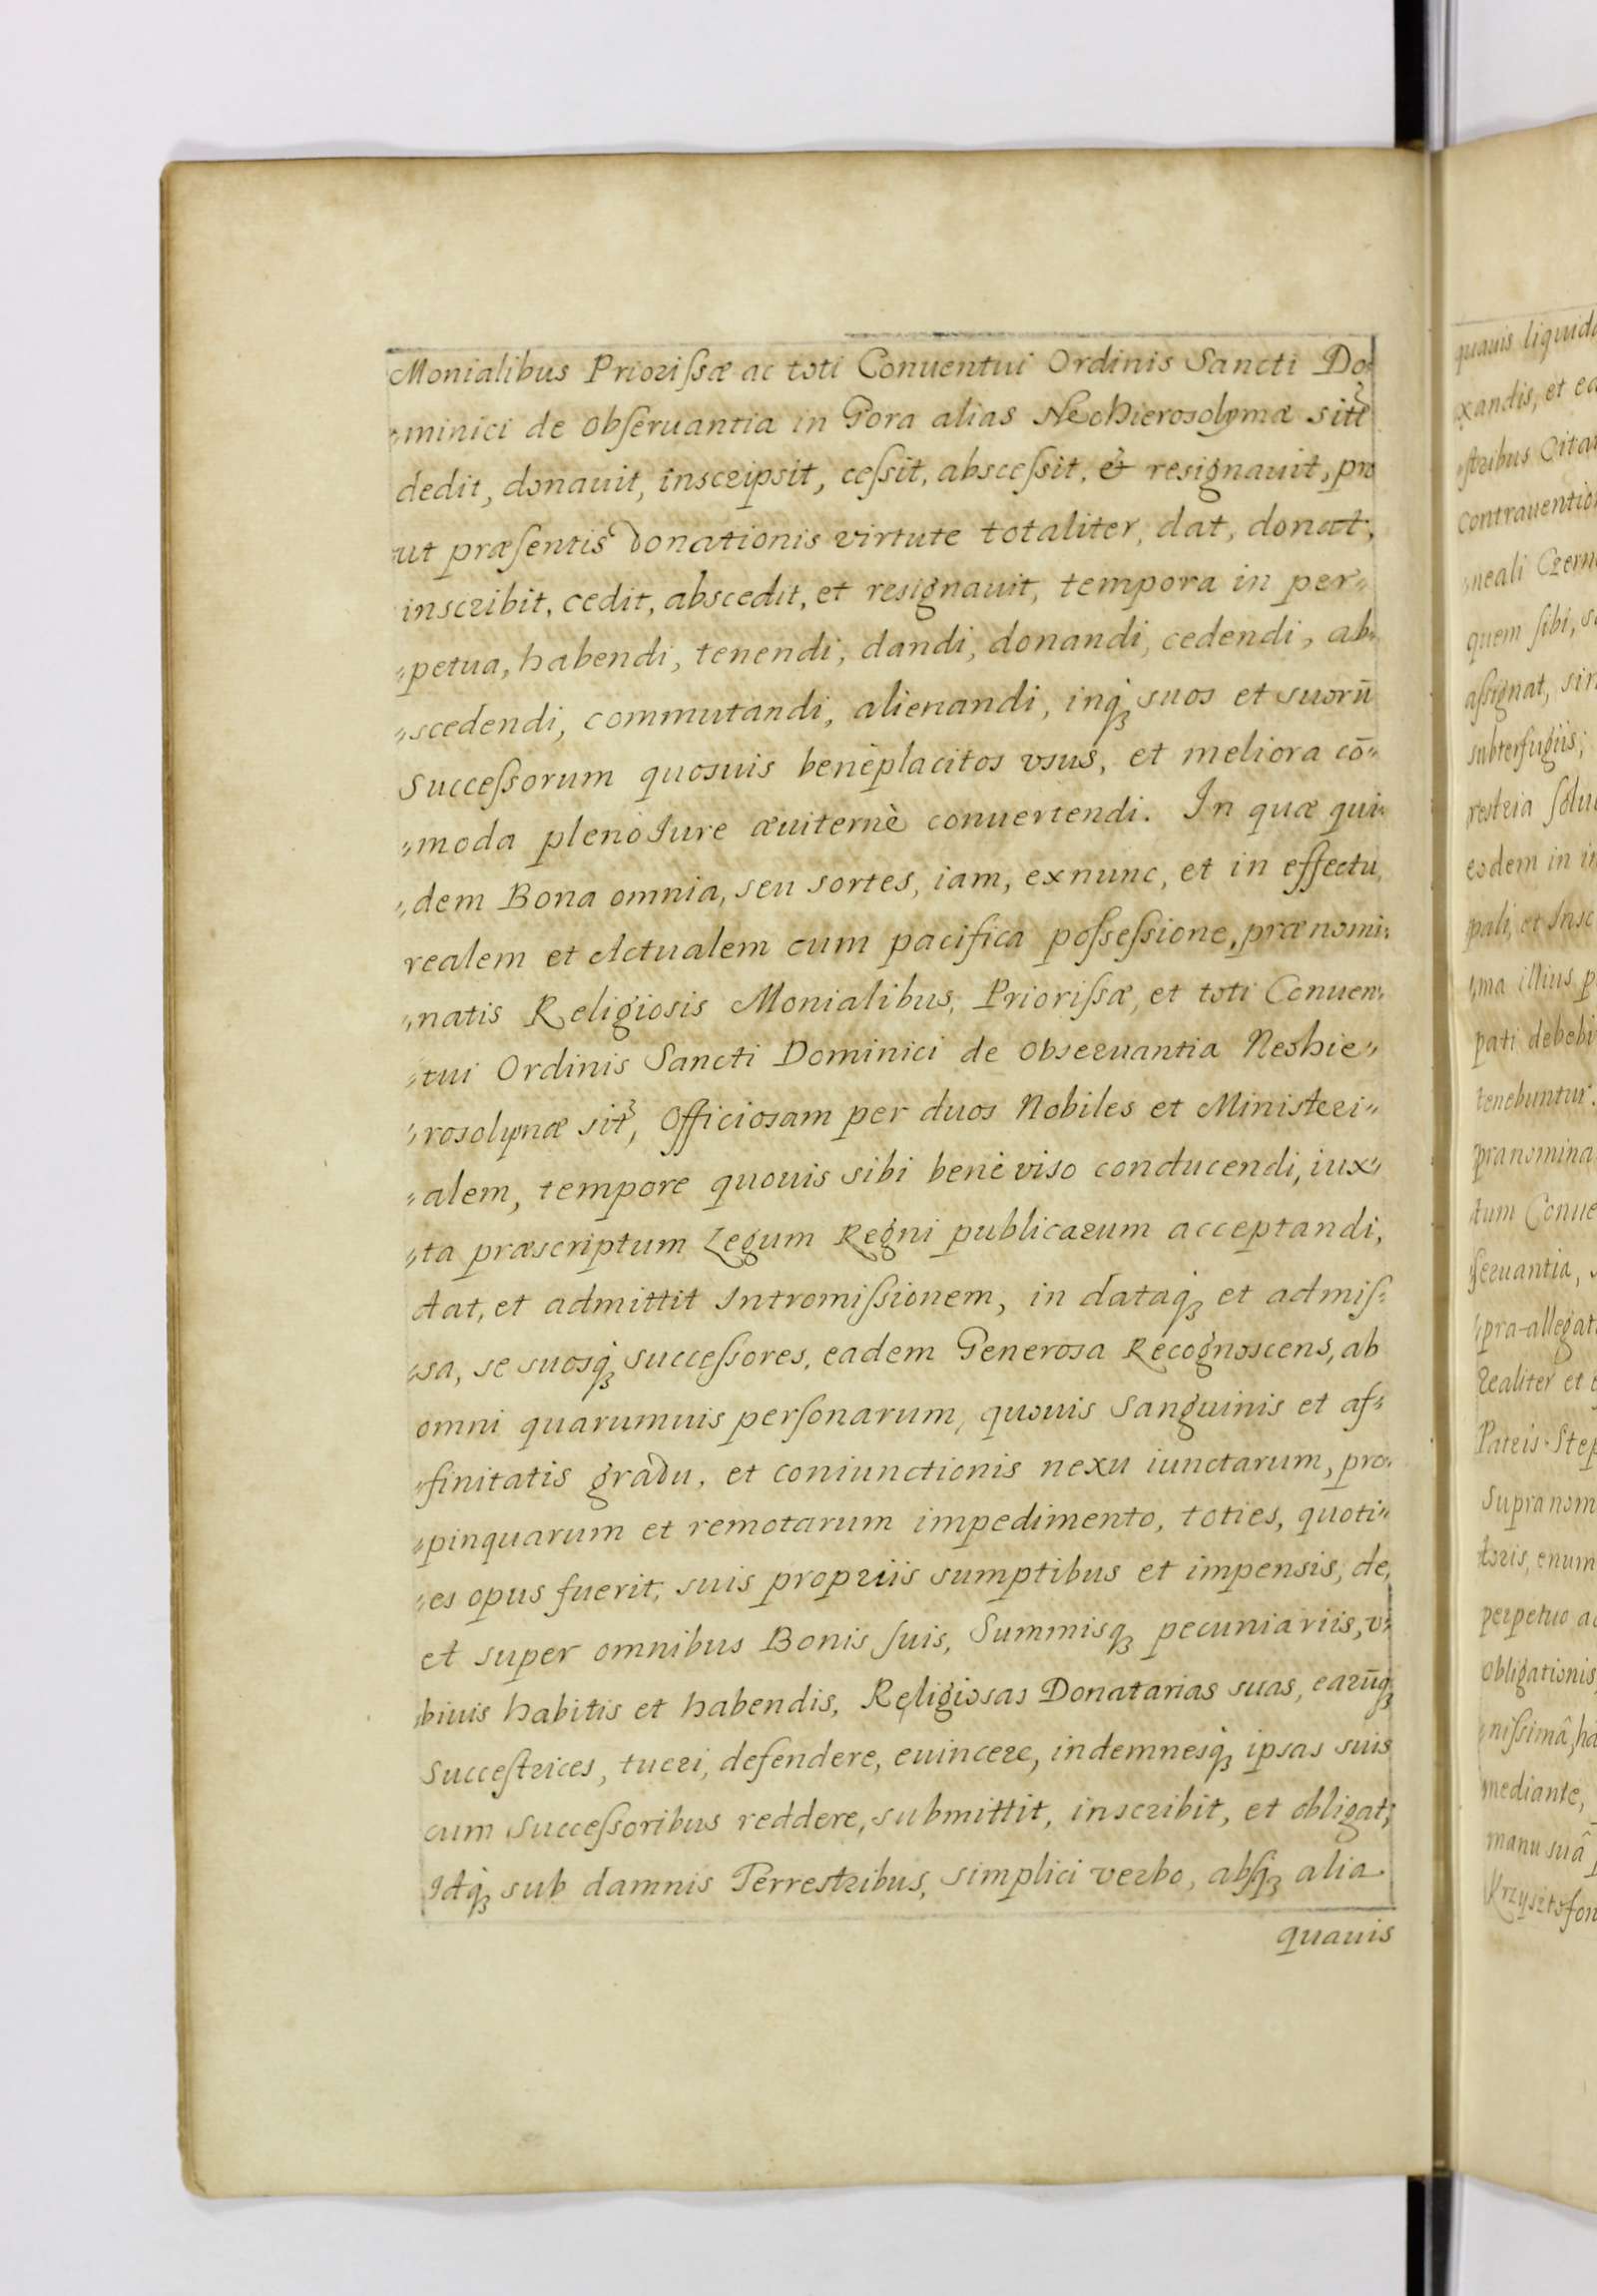 Monialibus Prioriſsæ ac toti Conuentui Ordinis Sancti Do„
„minici de obſeruantia in Gora alias Neohierosolymæ sitẽ
dedit, donauit, inscripsit, ceſsit, absceſsit, et resignauit, pro
ut præſentis donationis virtute totaliter, dat, donat,
inscribit, cedit, abscedit, et resignauit, tempora in per„
„petua, habendi, tenendi, dandi, donandi, cedendi, ab„
„scedendi, commutandi, alienandi, inq₃ suos et suorū
Succeſsorum quosuis benèplacitos vsus, et meliora cō„
„moda pleno Iure æuiternè conuertendi. In quæ qui„
„dem Bona omnia, seu sortes, iam, ex nunc, et in effectu,
realem et Actualem cum pacifica poſseſsione, prænomi„
„natis Religiosis Monialibus, Prioriſsæ, et toti Conuen„
„tui Ordinis Sancti Dominici de obseruantia Neohie„
„rosolymæ sit̃, Officiosam per duos Nobiles et Ministeri„
„alem, tempore quouis sibi benè viso conducendi, iux„
„ta præscriptum Legum Regni publicarum acceptandi,
dat, et admittit Intromiſsionem, in dataq₃ et admiſ„
„sa, se suosq₃ succeſsores, eadem Generosa Recognoscens, ab
omni quarumuis perſonarum, quouis Sanguinis et af„
„finitatis gradu, et coniunctionis nexu iunctarum, pro„
„pinquarum et remotarum impedimento, toties, quoti„
„es opus fuerit, suis propriis sumptibus et impensis, de,
et super omnibus Bonis ſuis, Summisq₃ pecuniariis, v„
„biuis habitis et habendis, Religiosas Donatarias suas, earūq₃
Succeſtrices, tueri, defendere, euincere, indemnesq₃ ipsas suis
cum Succeſsoribus reddere, submittit, inscribit, et obligat;
Idq₃ sub damnis Terrestribus, simplici verbo, abſq₃ alia
quauis
quauis liquid
xandis, et ea
„ſtribus Cita
contrauentio
„neali Czern
quem ſibi, s
aſsignat, sin
subterfugiis;
restria ſolu
eodem in in
pali, et Insc
„ma illius p
pati debebi
tenebuntur.
prænomina
tum Conue
ſeruantia, s
„pra-allegat
realiter et e
Patris Step
Supra nom
toris, enum
perpetuo ac
obligationis
„niſsimâ, ha
mediante,
manu suâ p
Krzysztofon